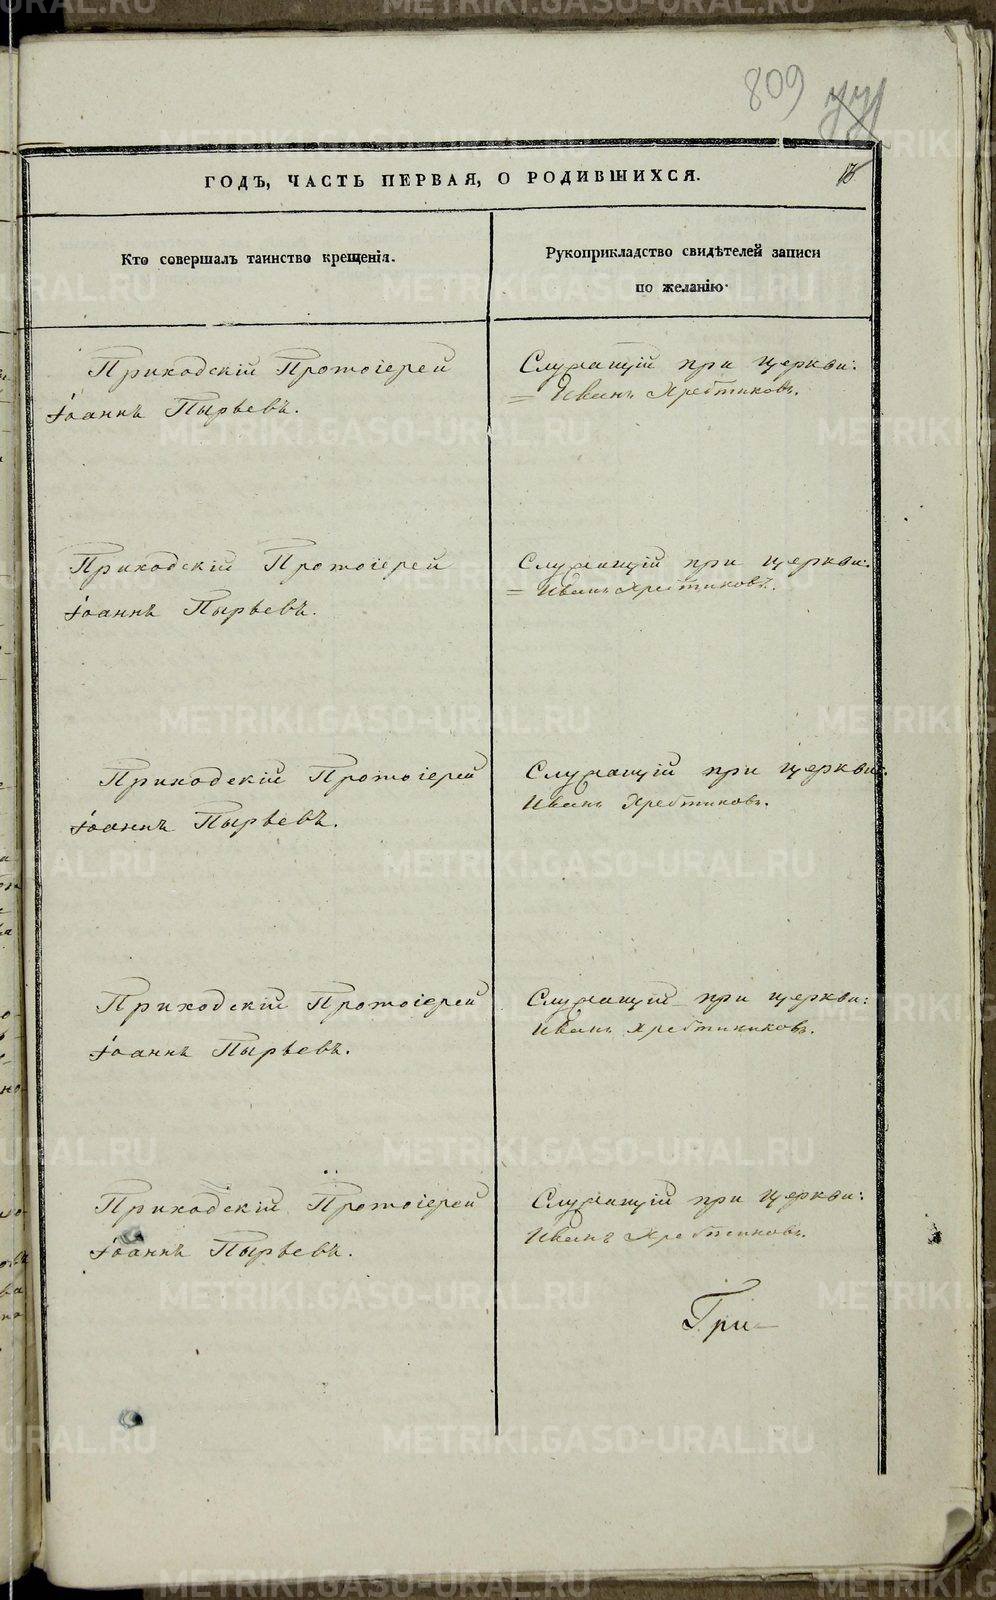 809
ГОДЪ, ЧАСТЬ ПЕРВАЯ, О РОДИВШИХСЯ.
Кто совершалъ таинство крещенія.
Рукоприкладство свидѣтелей записи
по желанію.
Приходскій Протоіерей
Іоаннъ Пырьевъ.
Служащій при церкви:
= Иванъ Хребтиковъ.
Приходскій Протоіерей
Іоаннъ Пырьевъ.
Служащій при церкви:
= Иванъ Хребтиковъ.
Приходскій Протоіерей
Іоаннъ Пырьевъ.
Служащій при церкви:
Иванъ Хребтиковъ.
Приходскій Протоіерей
Іоаннъ Пырьевъ.
Служащій при церкви:
Иванъ Хребтиниковъ.
Приходскій Протоіерей
Іоаннъ Пырьевъ.
Служащій при церкви:
Иванъ Хребтиковъ.
Гри-
METRIKI.GASO-URAL.RU